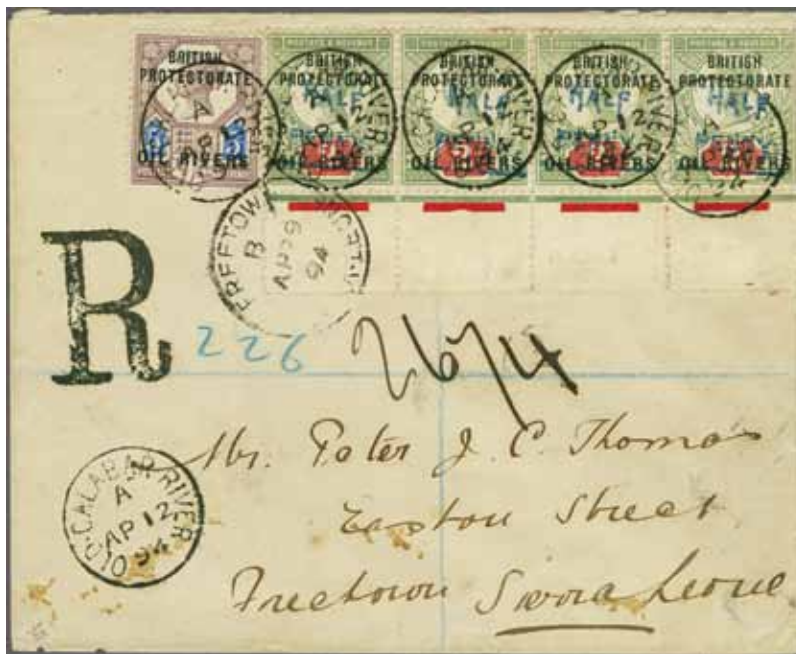 BRITISH PROTECTORATE OIL RIVERS
BRITISH PROTECTORATE HALF PENNY OIL RIVERS
BRITISH PROTECTORATE HALF PENNY OIL RIVERS
BRITISH PROTECTORATE HALF PENNY OIL RIVERS
BRITISH PROTECTORATE HALF OIL RIVERS
FREETOWN
B
AP 29
94
R
226
26/4
Mr. Peter J. C. Thomas
Easton Street
Freetown Sierra Leone
OLD CALABAR RIVER
A
AP 12
94